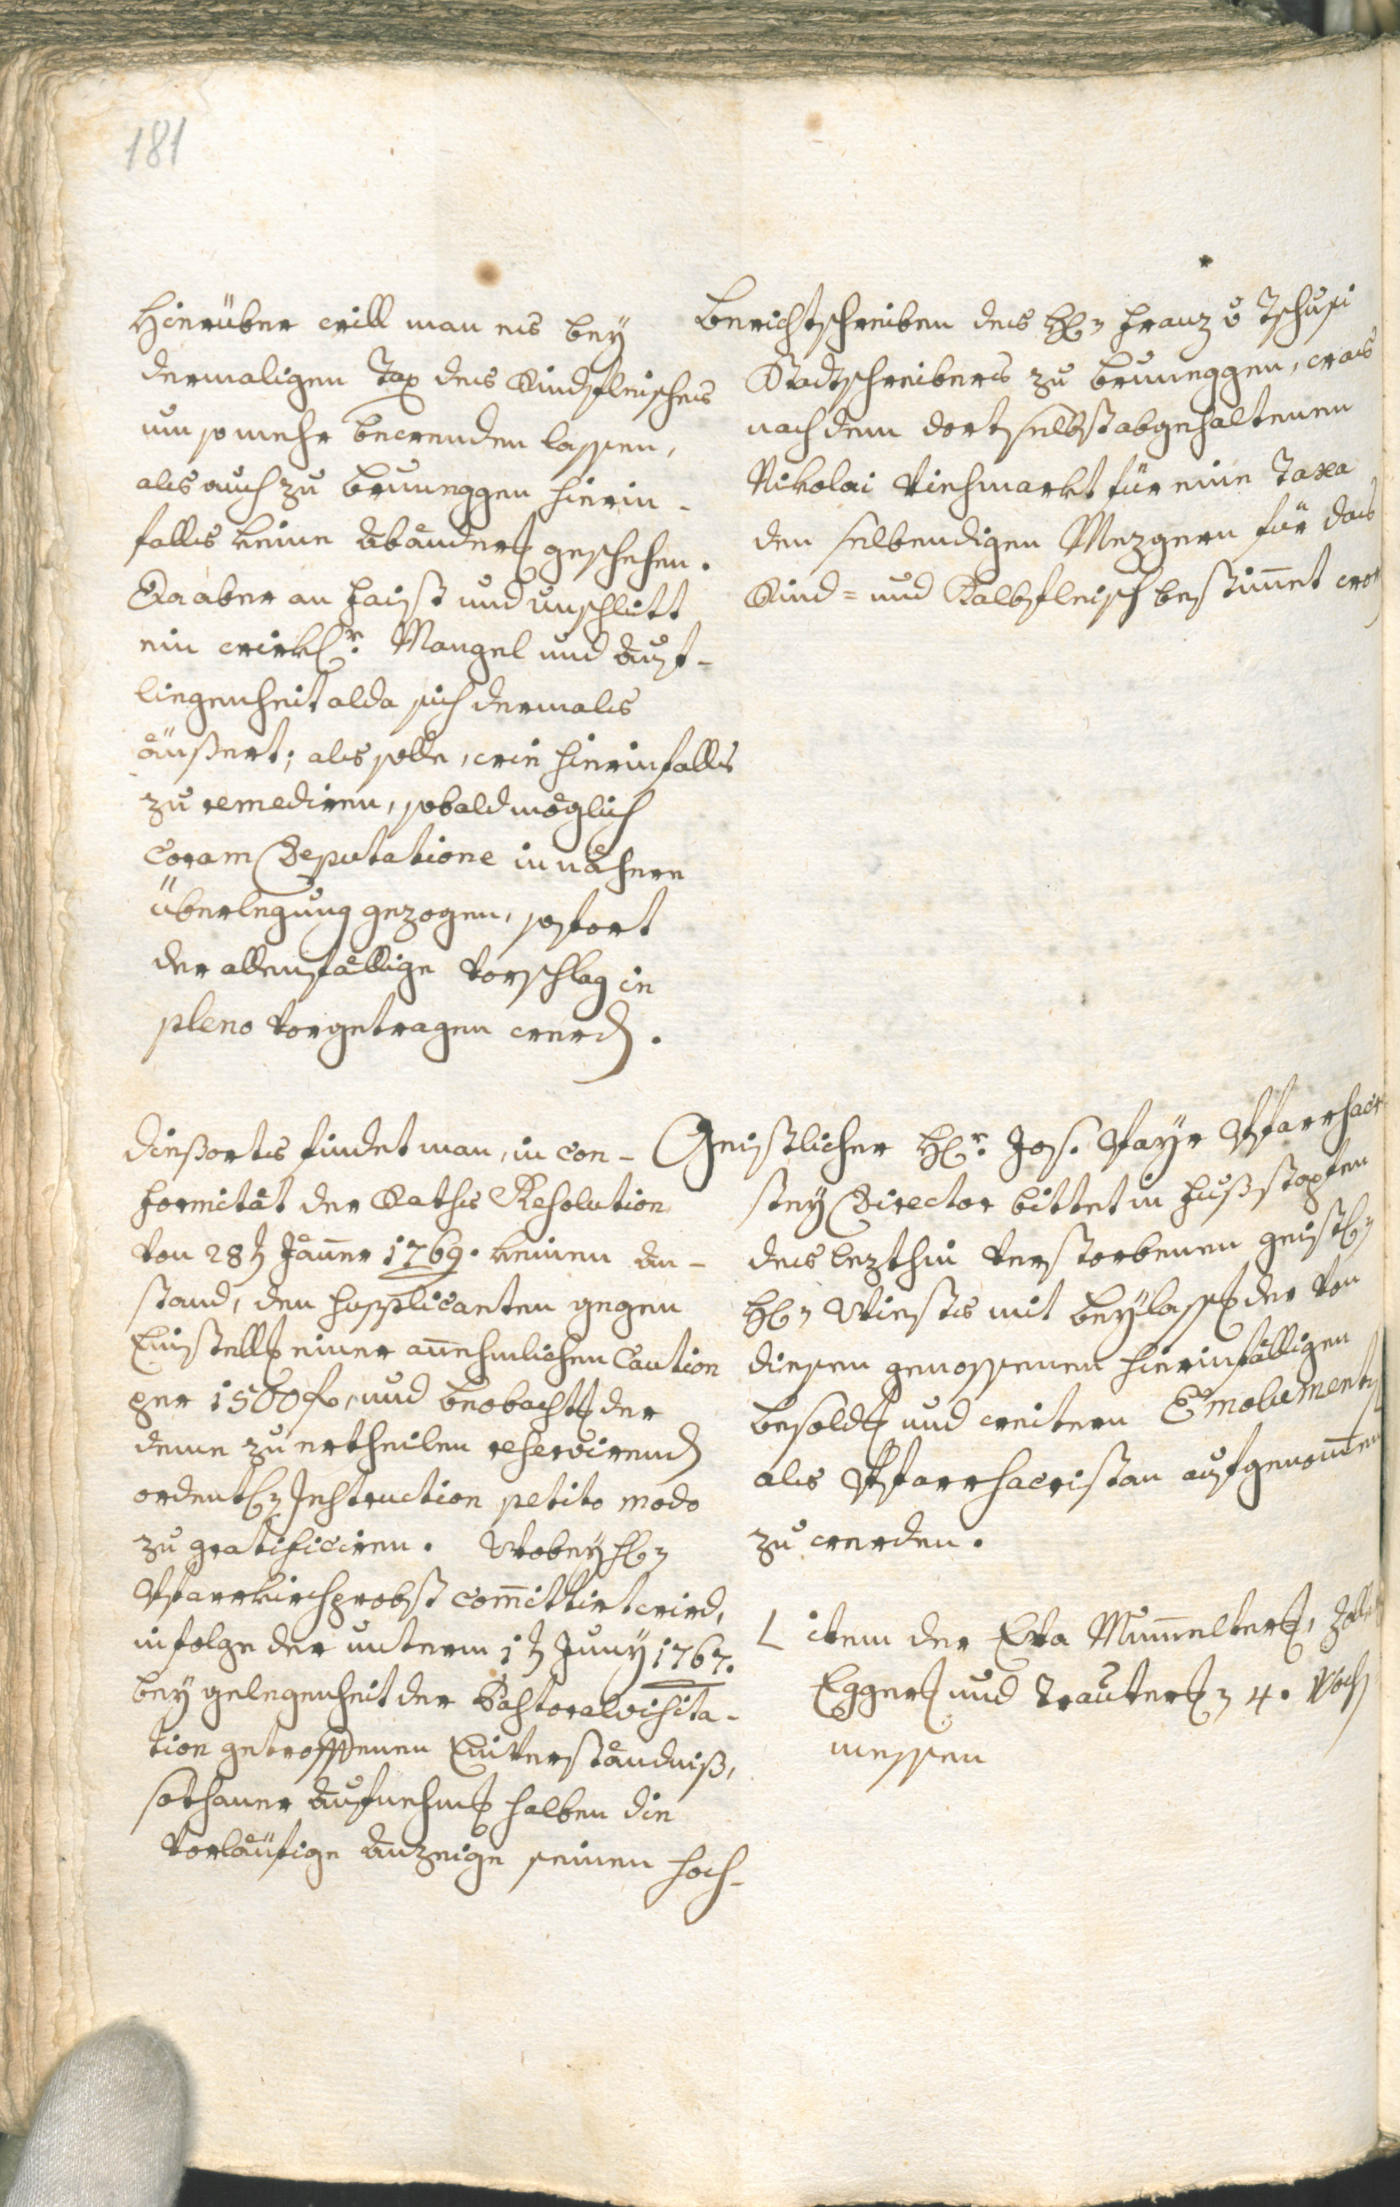 181
Hierüber will man es bey
dermaligen Tax des Rindfleisches
um so mehr bewenden lassen,
als auch zu Bruneggen hierin-
falls keine Abänder[ung] geschehen.
Da aber an Faist und Unschlitt
ein wirkl[iche]r Mangel und Auf-
liegenheit alda sich dermals
äußert; als solle, wie hierinfalls
zu remediren, sobald möglich
Coram Deputatione in nähere
Überlegung gezogen, sofort
der allenfällige Vorschlag in
pleno vorgetragen werd[en].
Berichtschreiben des H[errn] Franz v Tschusi
Stadtschreibers zu Bruneggen, was
nach dem dortselbst abgehaltenen
Nikolai Viehmarkt für eine Taxa
den selbendigen Mezgern für das
Rind- und Kalbfleisch bestim̅et wor
Dießorts findet man, in Con-
formität der Raths Resolution
von 28t Jäner 1769. keinen An-
stand, den Supplicanten gegen
Einstell[ung] einer an̅ehmlichen Caution
per 1500 f, und Beobacht[ung] der
deme zu ertheilen reservirend[en]
ordentl[ichen] Instruction petito modo
zu gratificiren. Wobey H[errn]
Pfarrkirchprobst com̅ittirt wird,
infolge der unterm 1t Juny 1767.
bey Gelegenheit der Pastoralvisita-
tion getroffenen Einverständniß,
sothaner Aufnehm[ung] halben die
vorläufige Anzeige seinen Hoch-
Geistlicher H[er]r Jos. Mayr Pfarrsacr
stey Director bittet in Fußstapfen
des lezthin verstorbenen geistl[ichen]
H[errn] Wiests mit Beylass[ung] der von
diesen genossenen hierinfälligen
Besold[ung] und weitern Emolument[en]
als Pfarrsacristan aufgenom̅en
zu werden.
L item der Eva Mum̅elter[in], Zall
Egger[in] und Trauter[in] 4. Woch
messen